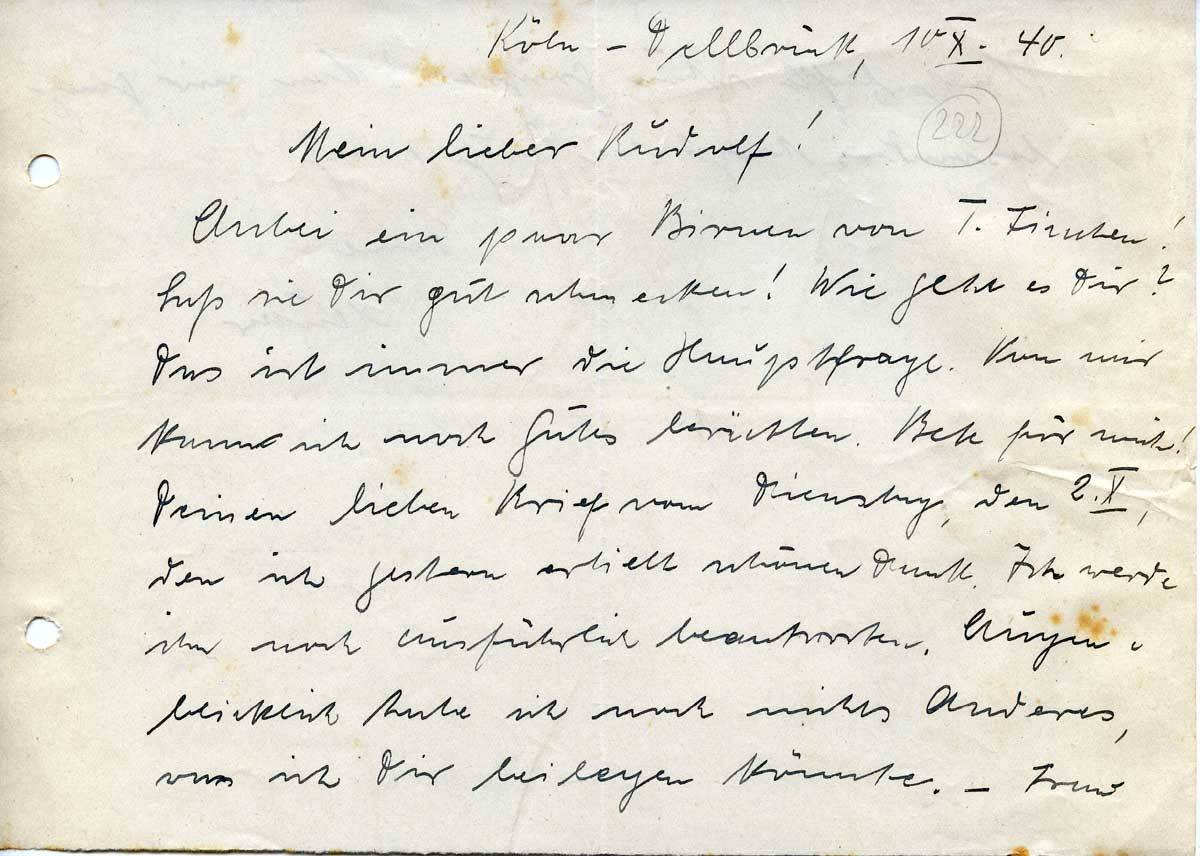 Köln – Dellbrück, 10.X. 40.
222
Mein lieber Rudolf!
Anbei ein paar Birnen von T. Finchen!
Laß sie Dir gut schmecken! Wie geht es Dir?
Das ist immer die Hauptfrage. Von mir
kann ich noch Gutes berichten. Bete für mich!
Deinen lieben Brief vom Dienstag, den 2.X,
den ich gestern erhielt schönen Dank. Ich werde
ihn noch ausführlich beantworten. Augen-
blicklich habe ich noch nichts Anderes,
was ich Dir beilegen könnte. –